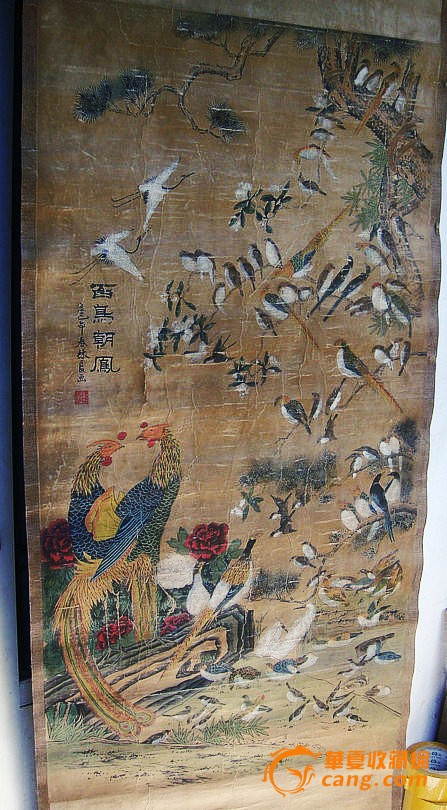 百鳥朝鳳
春林良画
華夏收藏網
cang.com